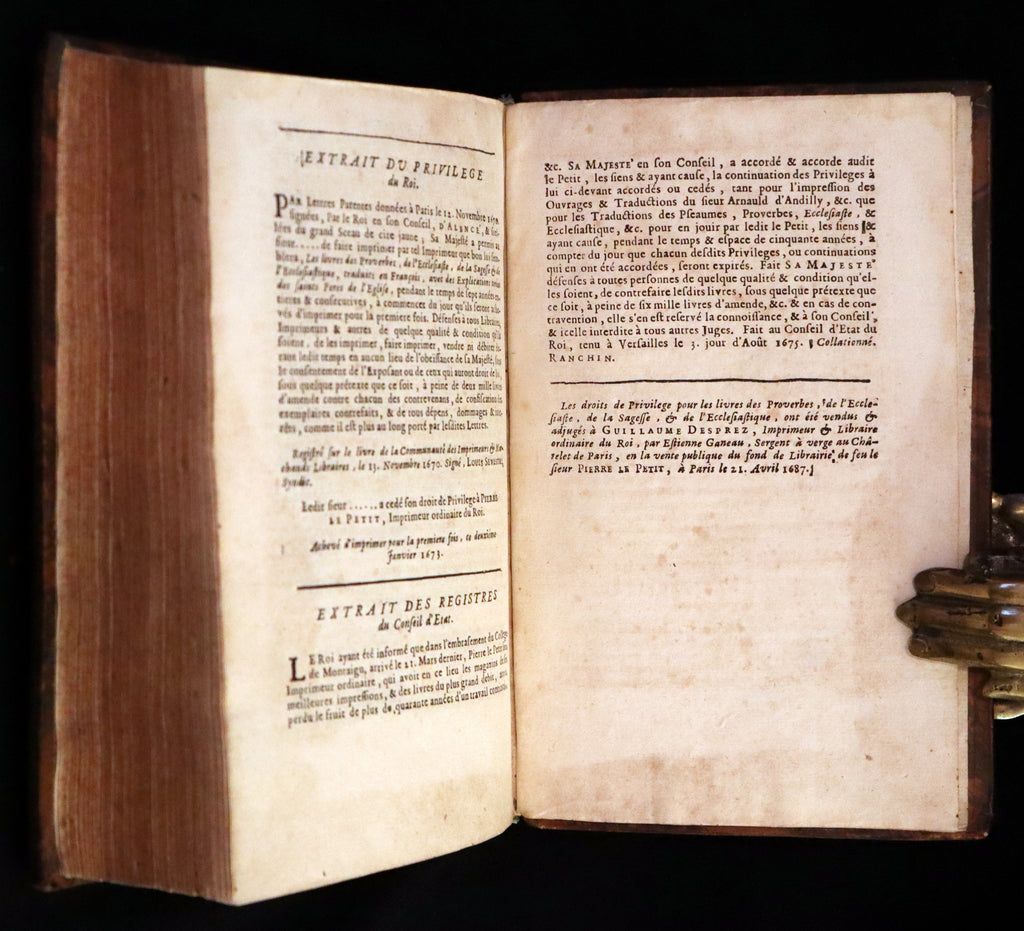 EXTRAIT DU PRIVILEGE
du Roi.
PAR Lettres Patentes données à Paris le 12. Novembre
signées, Par le Roi en son Conseil, D'ALENCE', & scel-
lées du grand Sceau de cire jaune, Sa Majesté a permis au
sieur...... de faire imprimer par tel Imprimeur que bon lui sem-
blera, Les livres des Proverbes, de l'Ecclesiaste, de la Sagesse & de
l'Ecclesiastique, traduits en François, avec des Explications
des saints Peres de l'Eglise, pendant le temps de sept années en-
tieres & consecutives, à commencer du jour qu'ils seront ache-
vés d'imprimer pour la premiere fois. Défenses à tous Libraires,
Imprimeurs & autres de quelque qualité & condition qu'ils
soient, de les imprimer, faire imprimer, vendre ni débiter du-
rant ledit temps en aucun lieu de l'obeïssance de sa Majesté, sans
le consentement de l'Exposant ou de ceux qui auront droit de lui,
sous quelque prétexte que ce soit, à peine de deux mille livres
d'amende contre chacun des contrevenans, de confiscation des
exemplaires contrefaits, & de tous dépens, dommages & inte-
rêts, comme il est plus au long porté par lesdites Lettres.
Registré sur le livre de la Communauté des Imprimeurs & Mar-
chands Libraires, le 13. Novembre 1670. Signé, LOUIS SEVESTRE,
Syndic.
Ledit sieur ...... a cedé son droit de Privilege à PIERRE
LE PETIT, Imprimeur ordinaire du Roi.
Achevé d'imprimer pour la premiere fois, ce deuxième
Janvier 1673.
EXTRAIT DES REGISTRES
du Conseil d'Etat.
LE Roi ayant été informé que dans l'embrasement du College
de Montaigu, arrivé le 21. Mars dernier, Pierre le Petit son
Imprimeur ordinaire, qui avoit en ce lieu les magazins de ses
meilleures impressions, & des livres du plus grand débit, avoit
perdu le fruit de plus de quarante années d'un travail
&c. SA MAJESTE' en son Conseil, a accordé & accorde audit
le Petit, les siens & ayant cause, la continuation des Privileges à
lui ci-devant accordés ou cedés, tant pour l'impression des
Ouvrages & Traductions du sieur Arnauld d'Andilly, &c. que
pour les Traductions des Pseaumes, Proverbes, Ecclesiaste, &
Ecclesiastique, &c. pour en jouir par ledit le Petit, les siens &
ayant cause, pendant le temps & espace de cinquante années, à
compter du jour que chacun desdits Privileges, ou continuations
qui en ont été accordées, seront expirés. Fait SA MAJESTE'
défenses à toutes personnes de quelque qualité & condition qu'el-
les soient, de contrefaire lesdits livres, sous quelque prétexte que
ce soit, à peine de six mille livres d'amende, &c. & en cas de con-
travention, elle s'en est reservé la connoissance, & à son Conseil,
& icelle interdite à tous autres Juges. Fait au Conseil d'Etat du
Roi, tenu à Versailles le 3. jour d'Août 1675. Collationné.
RANCHIN.
Les droits de Privilege pour les livres des Proverbes, de l'Eccle-
siaste, de la Sagesse, & de l'Ecclesiastique, ont été vendus &
adjugés à GUILLAUME DESPREZ, Imprimeur & Libraire
ordinaire du Roi, par Estienne Ganeau, Sergent à verge au Châ-
telet de Paris, en la vente publique du fond de Librairie de feu le
sieur PIERRE LE PETIT, à Paris le 21. Avril 1687.